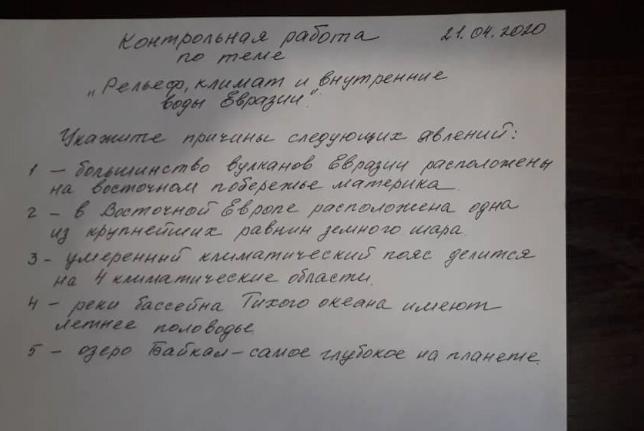 Контрольная работа 21.04.2020
по теме
"Рельеф, климат и внутренние
воды Евразии".
Укажите причины следующих явлений:
1 - большинство вулканов Евразии расположены
на восточном побережье материка.
2 - в Восточной Европе расположена одна
из крупнейших равнин земного шара.
3 - умеренный климатический пояс делится
на 4 климатические области.
4 - реки бассейна Тихого океана имеют
летнее половодье
5 - озеро Байкал - самое глубокое на планете.